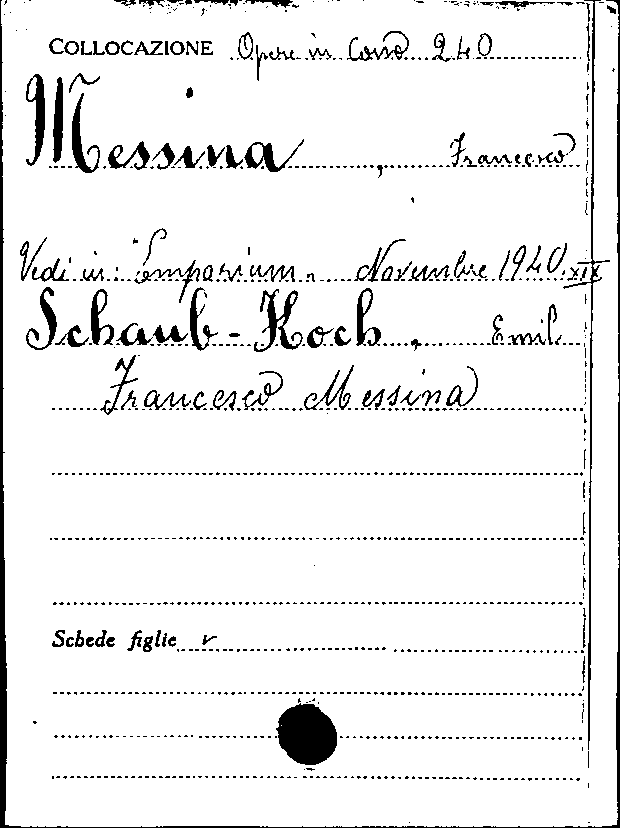 COLLOCAZIONE Opere in Corso 240
Messina, Francesco
Vedi in: "Emporium" Novembre 1940 XIX
Schaub-Koch, Emil
Francesco Messina
Schede figlie v